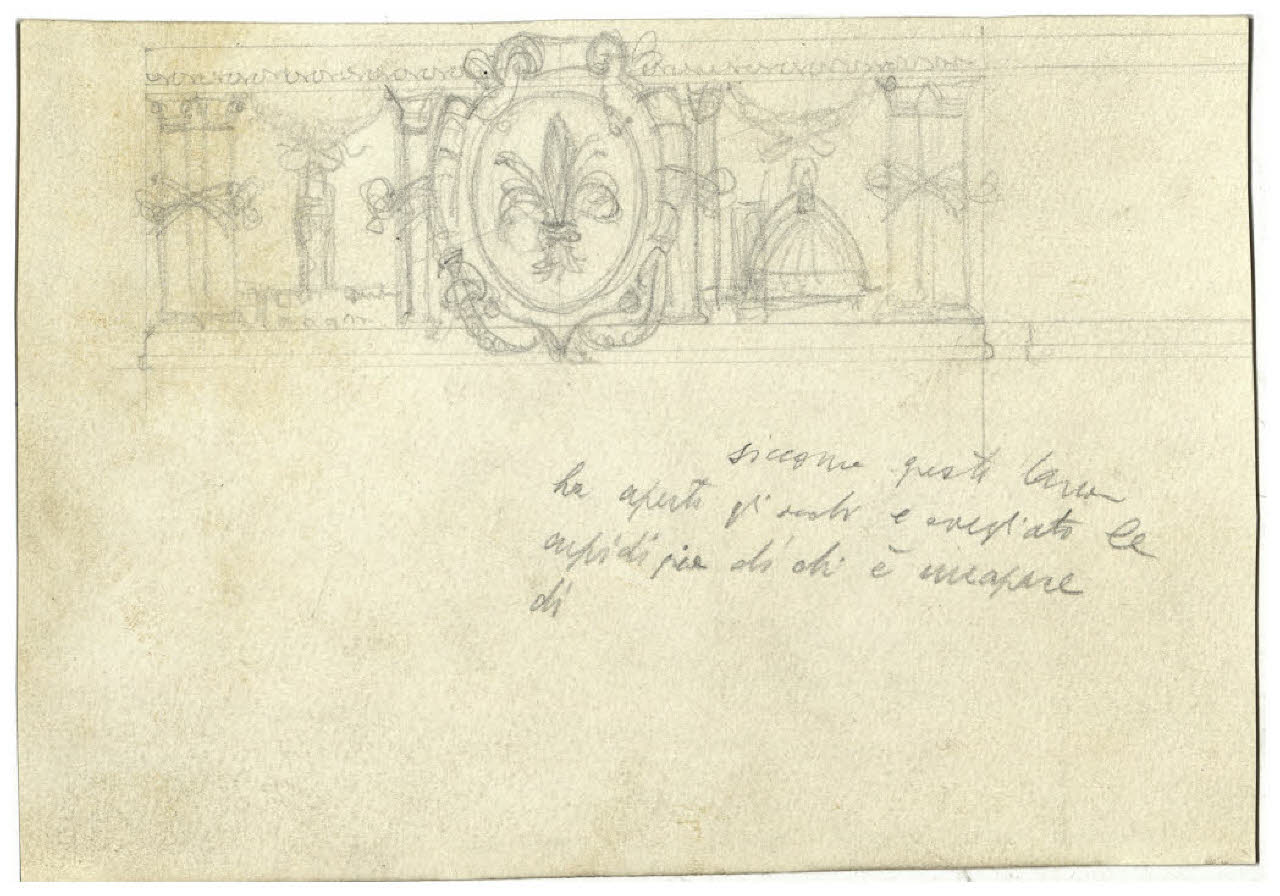 siccome questo lavoro
ha aperto gli occhi e svegliato le
cupidigie di chi è incapace
di